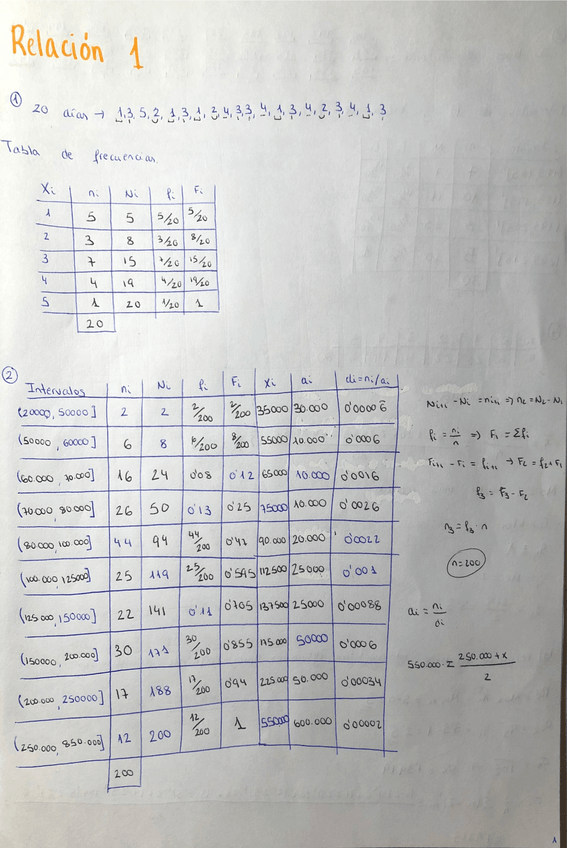 Relación 1
① 20 días → 1, 3, 5, 2, 1, 3, 1, 2, 4, 3, 3, 4, 1, 3, 4, 2, 3, 4, 1, 3
Tabla de frecuencias
Xi ni Ni fi Fi
1 5 5 5/20 5/20
2 3 8 3/20 8/20
3 7 15 7/20 15/20
4 4 19 4/20 19/20
5 1 20 1/20 1
20
② Intervalos ni Ni fi Fi xi ai di=ni/ai
(20000, 50000] 2 2 2/200 2/200 35000 30.000 0'00006
(50000, 60000] 6 8 6/200 8/200 55000 10.000 0'0006
(60.000, 70.000] 16 24 0'08 0'12 65000 10.000 0'0016
(70000, 80000] 26 50 0'13 0'25 75000 10.000 0'0026
(80.000, 100.000] 44 94 44/200 0'47 90.000 20.000 0'0022
(100.000, 125000] 25 119 25/200 0'595 112500 25000 0'001
(125.000, 150000] 22 141 0'11 0'705 137500 25000 0'00088
(150000, 200.000] 30 171 30/200 0'855 175.000 50000 0'0006
(200.000, 250000] 17 188 17/200 0'94 225.000 50.000 0'00034
(250.000, 850.000] 12 200 12/200 1 55000 600.000 0'00002
200
Ni+1 - Ni = ni+1 ⇒ n2 = N2 - N1
fi = ni/n ⇒ Fi = Σfi
Fi+1 - Fi = fi+1 → F2 = f2+F1
f3 = F3 - F2
n3 = f3 · n
n=200
ai = ni/di
550.000 = (250.000 + x)/2
1